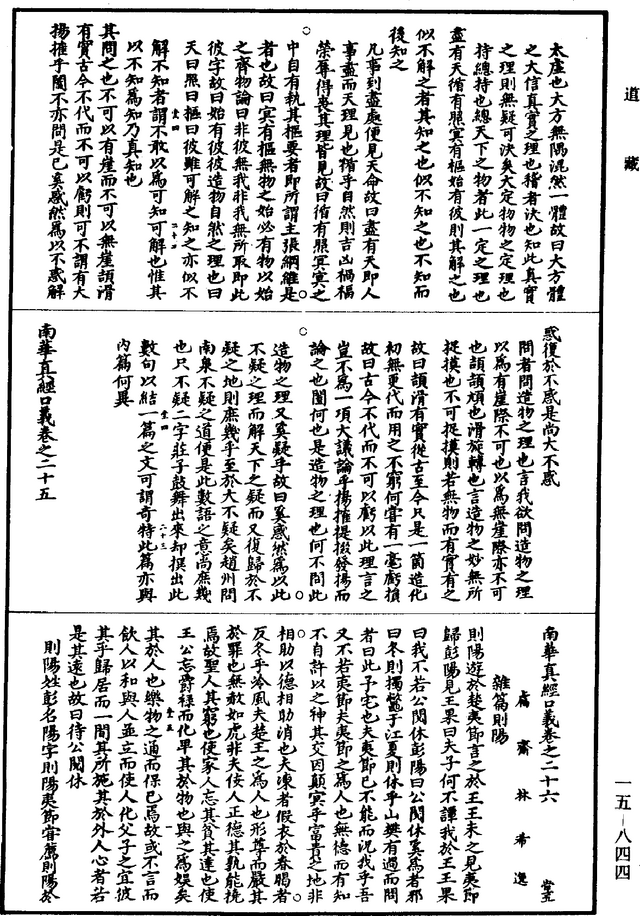 道藏
太虛也大方無隅混然一體故曰大方體
之大信真實之理也稽者決也知此真實
之理則無疑可決矣大定物物之定理也
持總持也總天下之物者此一定之理也
盡有天循有照冥有樞始有彼則其解之也
似不解之者其知之也似不知之也不知而
後知之
凡事到盡處便見天命故曰盡有天即人
事盡而天理見也循乎自然則吉凶禍福
榮辱得喪其理皆見故曰循有照冥冥之
中自有執其樞要者即所謂主張綱維是
者也故曰冥有樞無物之始必有物以始
之齊物論曰非彼無我非我無所取即此
彼字故曰始有彼彼造物自然之理也曰
天曰照曰樞曰彼雖可解之知之亦似不
解不知者謂不敢以為可知可解也惟其
以不知為知乃真知也
其問之也不可以有崖而不可以無崖頡滑
有實古今不代而不可以虧則可不謂有大
揚搉乎闔不亦問是已奚惑然為以不惑解
惑復於不惑是尚大不惑
問者問造物之理也言我欲問造物之理
以為有崖際不可也以為無崖際亦不可
也頡頡頏也滑旋轉也言造物之妙無所
捉摸也不可捉摸則若無物而有實有之
故曰頡滑有實從古至今只是一箇造化
初無更代而用之不窮何嘗有一毫虧損
故曰古今不代而不可以虧以此理言之
豈不為一項大議論乎揚搉提掇發揚而
論之也闔何也是造物之理也何不問此
造物之理又奚疑乎故曰奚惑然為以此
不疑之理而解天下之疑而又復歸於不
疑之地則庶幾乎至於大不疑矣趙州問
南泉不疑之道便是此數語之意尚庶幾
也只不疑二字莊子鼓舞出來却撰出此
數句以結一篇之文可謂奇特此篇亦與
內篇何異
南華真經口義卷之二十五
南華真經口義卷之二十六
鬳齋林希逸
雜篇則陽
則陽遊於楚夷節言之於王王未之見夷節
歸彭陽見王果曰夫子何不譚我於王王果
曰我不若公閱休彭陽曰公閱休奚為者邪
曰冬則擉鼈于江夏則休乎山樊有過而問
者曰此予宅也夫夷節已不能而況我乎吾
又不若夷節夫夷節之為人也無德而有知
不自許以之神其交因顛冥乎富貴之地非
相助以德相助消也夫凍者假衣於春暍者
反冬乎冷風夫楚王之為人也形尊而嚴其
於罪也無赦如虎非夫佞人正德其孰能撓
焉故聖人其窮也使家人忘其貧其達也使
王公忘爵祿而化卑其於物也與之為娛矣
其於人也樂物之通而保已焉故或不言而
飲人以和與人並立而使人化父子之宜彼
其乎歸居而一閒其所施其於外人心者若
是其遠也故曰待公閱休
則陽姓彭名陽字則陽夷節嘗薦則陽於
一五-八四四